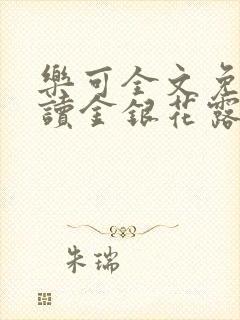 樂可全文免
讀金銀花露
朱瑞